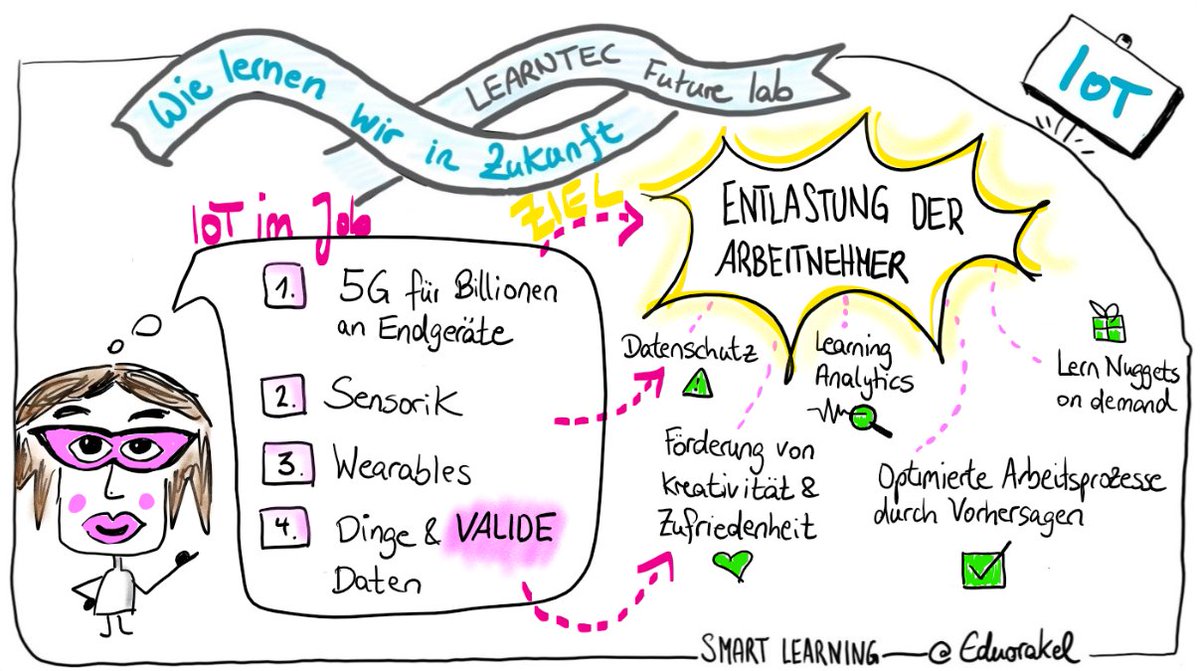 Wie lernen wir in Zukunft
LEARNTEC Future lab
IoT
IoT im Job
ZIEL
ENTLASTUNG DER
ARBEITNEHMER
1. 5G für Billionen
an Endgeräte
2. Sensorik
3. Wearables
4. Dinge & VALIDE
Daten
Datenschutz
Learning
Analytics
Lern Nuggets
on demand
Förderung von
Kreativität &
Zufriedenheit
Optimierte Arbeitsprozesse
durch Vorhersagen
SMART LEARNING @Eduorakel